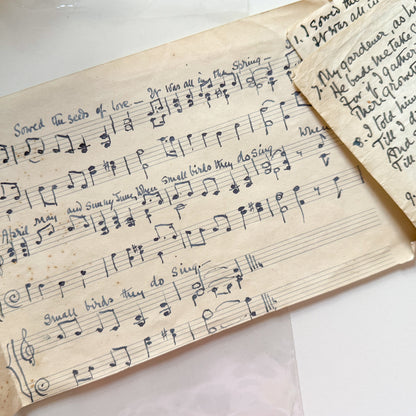 Sowed the seeds of love - It was all in the Spring -
When
April May and sunny June, When small birds they do sing
Small birds they do sing -
1. I Sowed the
It was all i
7. My gardener as
He bade me take
For if I gather
8. I told hi
Till I
And
Till
9.